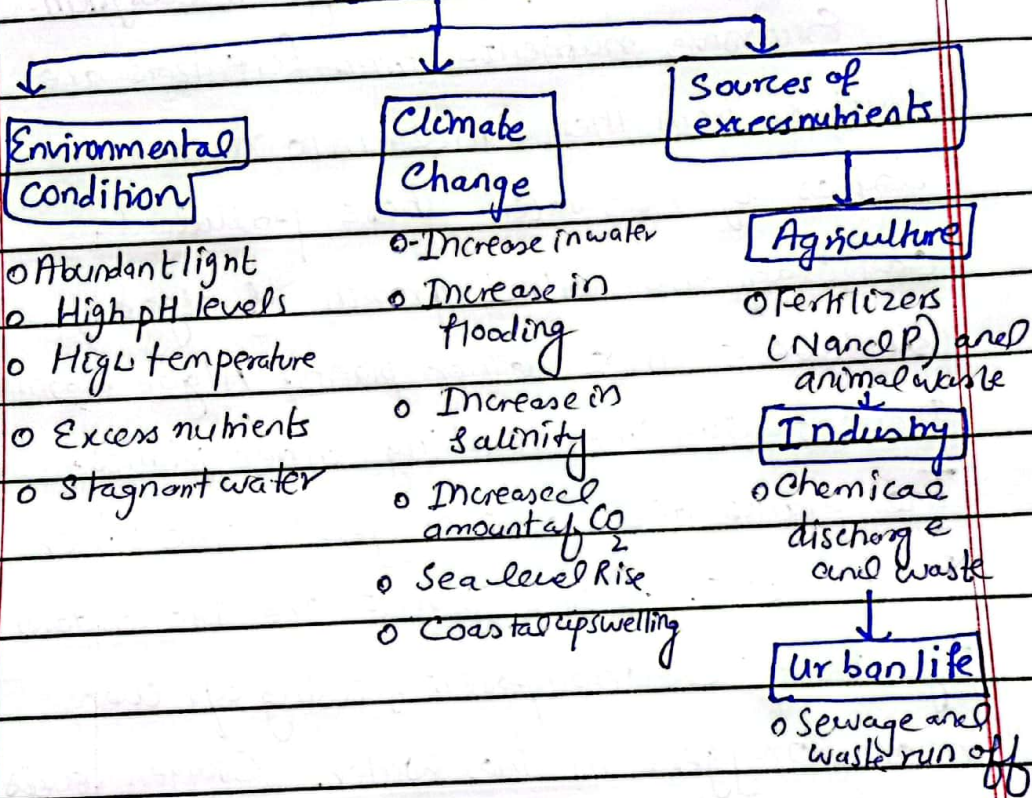 Environmental
Condition
o Abundant light
o High pH levels
o High temperature
o Excess nutrients
o Stagnant water
Climate
Change
o Increase in water
o Increase in
flooding
o Increase in
Salinity
o Increased
amount of CO2
o Sea level Rise
o Coastal upswelling
Sources of
excess nutrients
Agriculture
o Fertilizers
(N and P) and
animal waste
Industry
o Chemical
discharge
and waste
Urban life
o Sewage and
waste run off